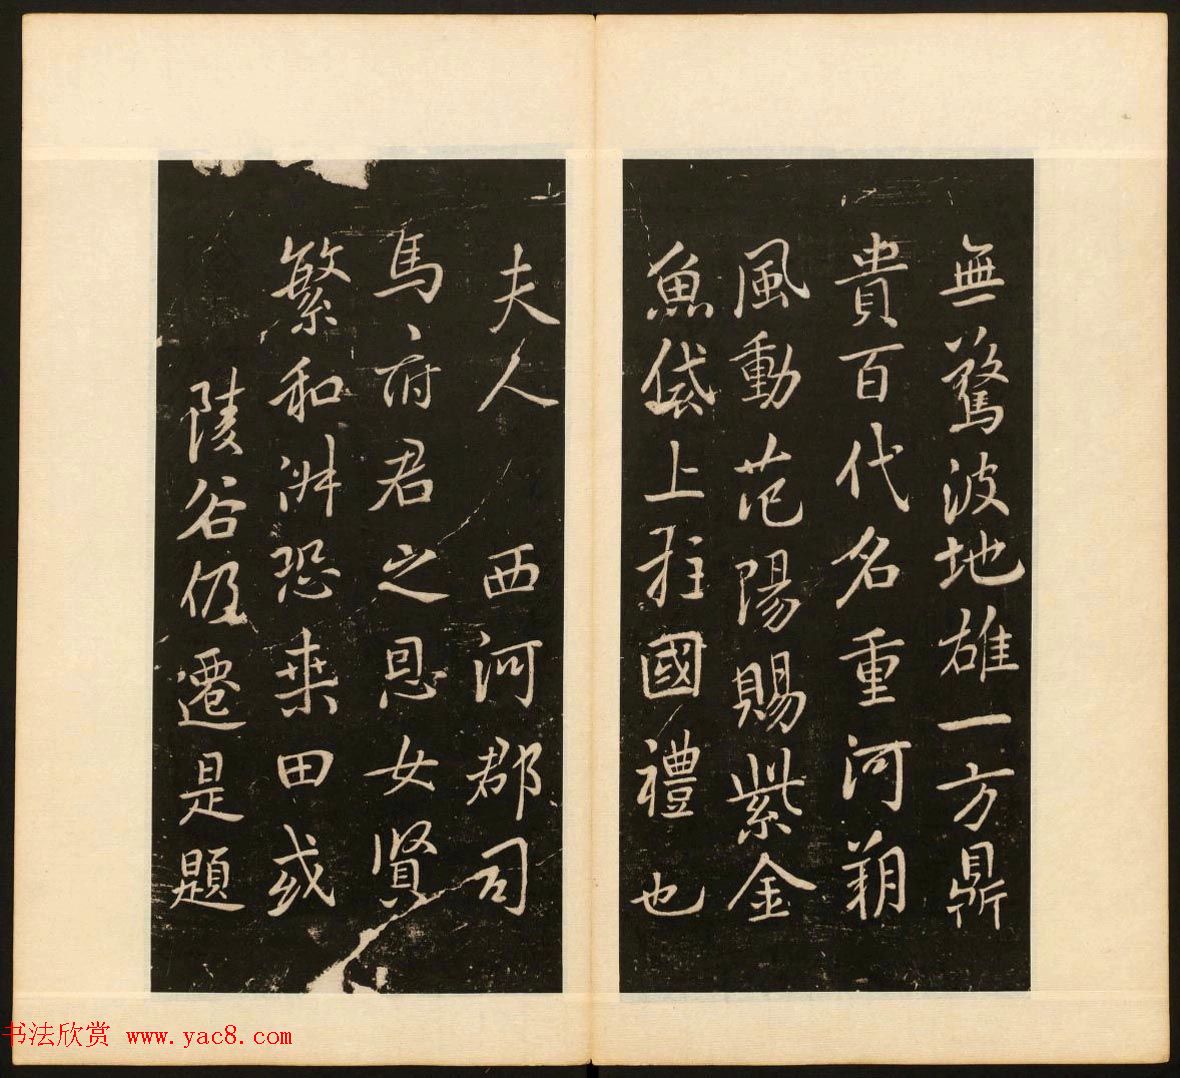 無驚波地雄一方鼎
貴百代名重河朔
風動范陽賜紫金
魚袋上柱國禮也
夫人西河郡司
馬府君之息女賢
繁和淋恐桒田或
陵谷仍遷是題
书法欣赏 www.yac8.com